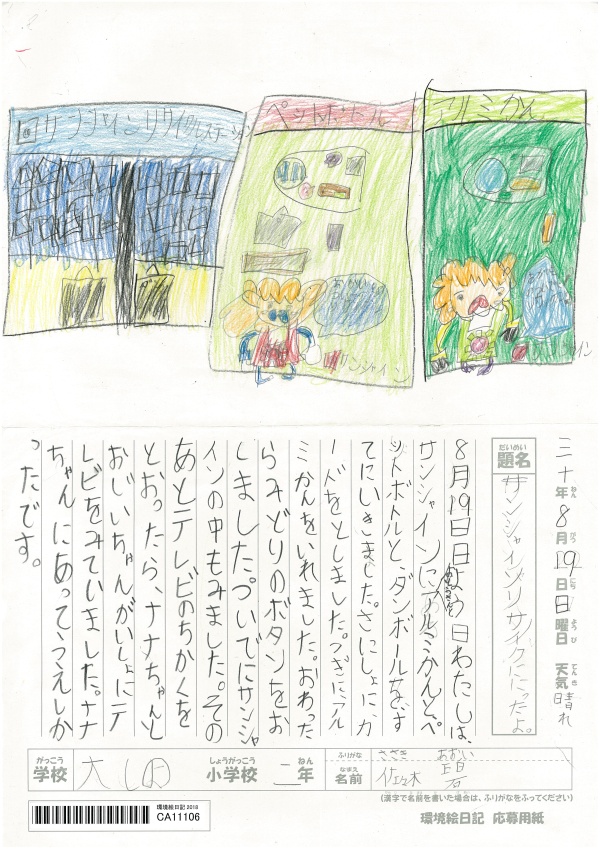 サンシャインリサイクルステーション
ペットボトル
アルミかん
サンシャイン
三十年8月19日日曜日 天気晴れ
ねん がつ にち ようび てんき
だいめい
題名
8月19日日よう日わたしは、
サンシャインに、アルミかんとペ
ットボトルと、ダンボールをす
てにいきました。さいしょに、カ
ードをとしました。つぎに、アル
ミかんをいれました。おわった
らみどりのボタンをお
しました。ついでにサンシャ
インの中もみました。その
あとテレビのちかくを
とおったら、ナナちゃんと
おじいちゃんがいしょにテ
レビをみていました。ナナ
ちゃんにあってうれしか
ったです。
がっこう しょうがっこう ねん ふりがな ささき
学校 小学校 二年 なまえ 名前 佐々木
(漢字で名前を書いた場合は、ふりがなをふってください)
環境絵日記2018
CA11106
環境絵日記 応募用紙